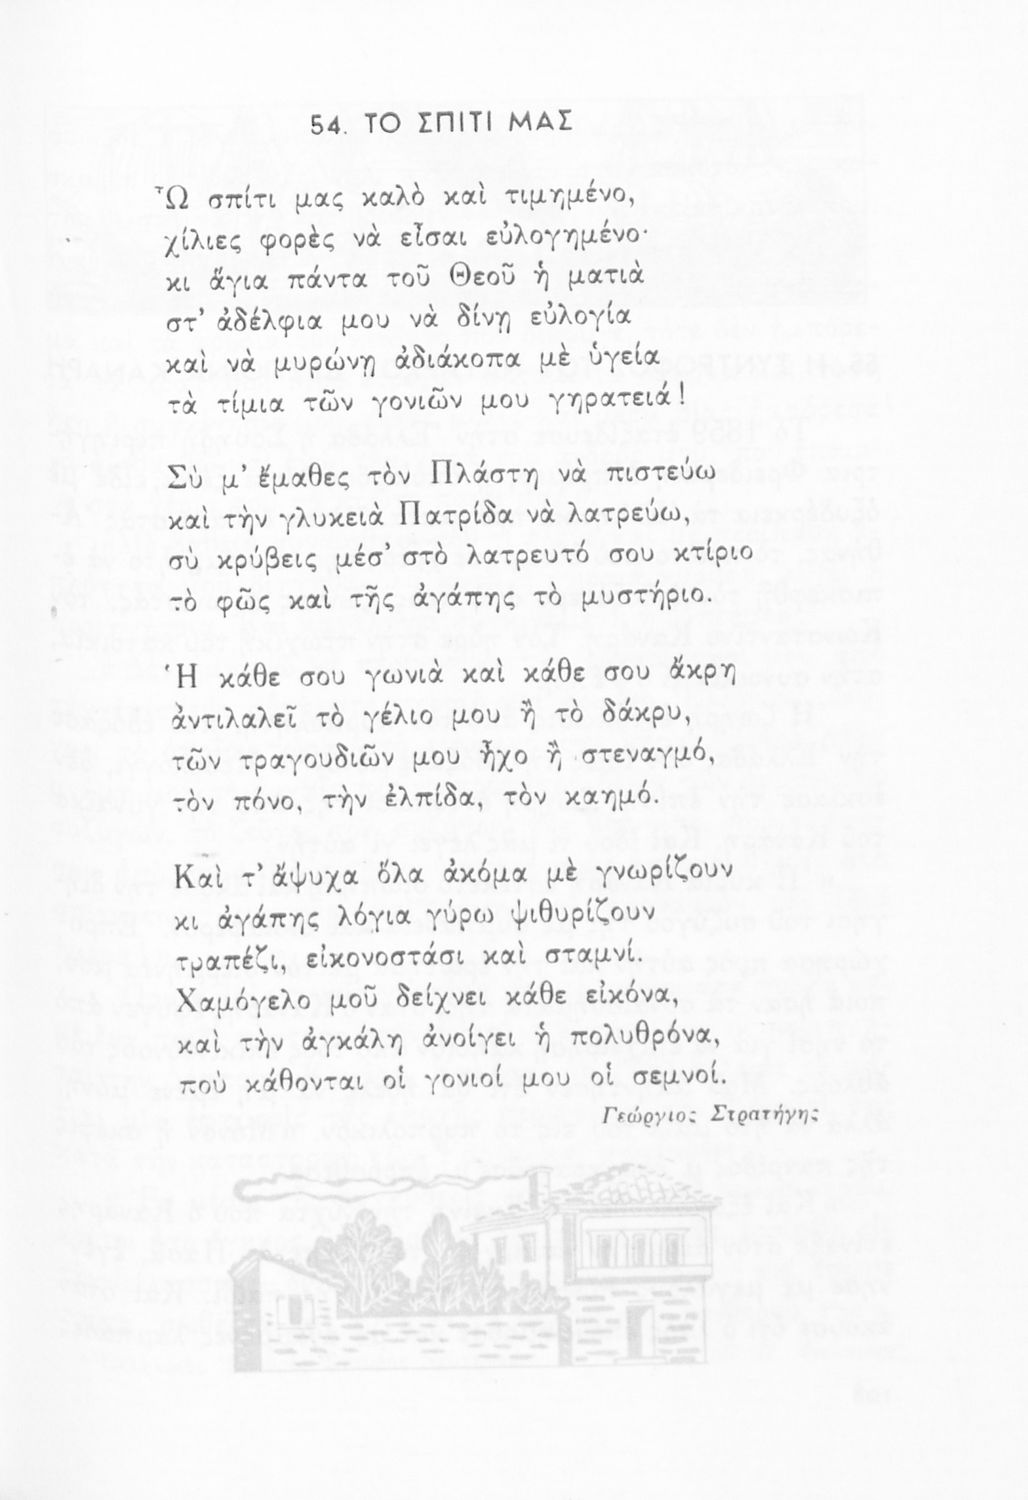 54. ΤΟ ΣΠΙΤΙ ΜΑΣ
Ὦ σπίτι μας καλὸ καὶ τιμημένο,
χίλιες φορὲς νὰ εἶσαι εὐλογημένο·
κι ἅγια πάντα τοῦ Θεοῦ ἡ ματιὰ
στ' ἀδέλφια μου νὰ δίνῃ εὐλογία
καὶ νὰ μυρώνῃ ἀδιάκοπα μὲ ὑγεία
τὰ τίμια τῶν γονιῶν μου γηρατειά!
Σὺ μ' ἔμαθες τὸν Πλάστη νὰ πιστεύω
καὶ τὴν γλυκειὰ Πατρίδα νὰ λατρεύω,
σὺ κρύβεις μέσ' στὸ λατρευτό σου κτίριο
τὸ φῶς καὶ τῆς ἀγάπης τὸ μυστήριο.
Ἡ κάθε σου γωνιὰ καὶ κάθε σου ἄκρη
ἀντιλαλεῖ τὸ γέλιο μου ἢ τὸ δάκρυ,
τῶν τραγουδιῶν μου ἦχο ἢ στεναγμό,
τὸν πόνο, τὴν ἐλπίδα, τὸν καημό.
Καὶ τ' ἄψυχα ὅλα ἀκόμα μὲ γνωρίζουν
κι ἀγάπης λόγια γύρω ψιθυρίζουν
τραπέζι, εἰκονοστάσι καὶ σταμνί.
Χαμόγελο μοῦ δείχνει κάθε εἰκόνα,
καὶ τὴν ἀγκάλη ἀνοίγει ἡ πολυθρόνα,
ποὺ κάθονται οἱ γονιοί μου οἱ σεμνοί.
Γεώργιος Στρατήγης